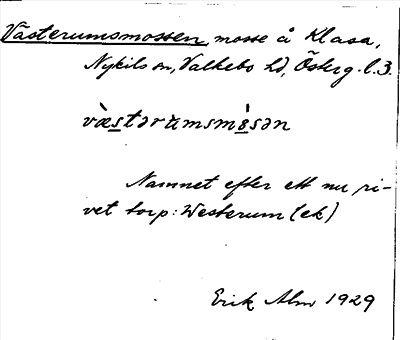 Västerumsmossen, mosse å Klasa,
Nykils sn, Valkebo hd, Österg. l. 3.
væ̀stərumsmòsən
Namnet efter ett nu ri-
vet torp: Westerum (ek)
Erik Alm 1929